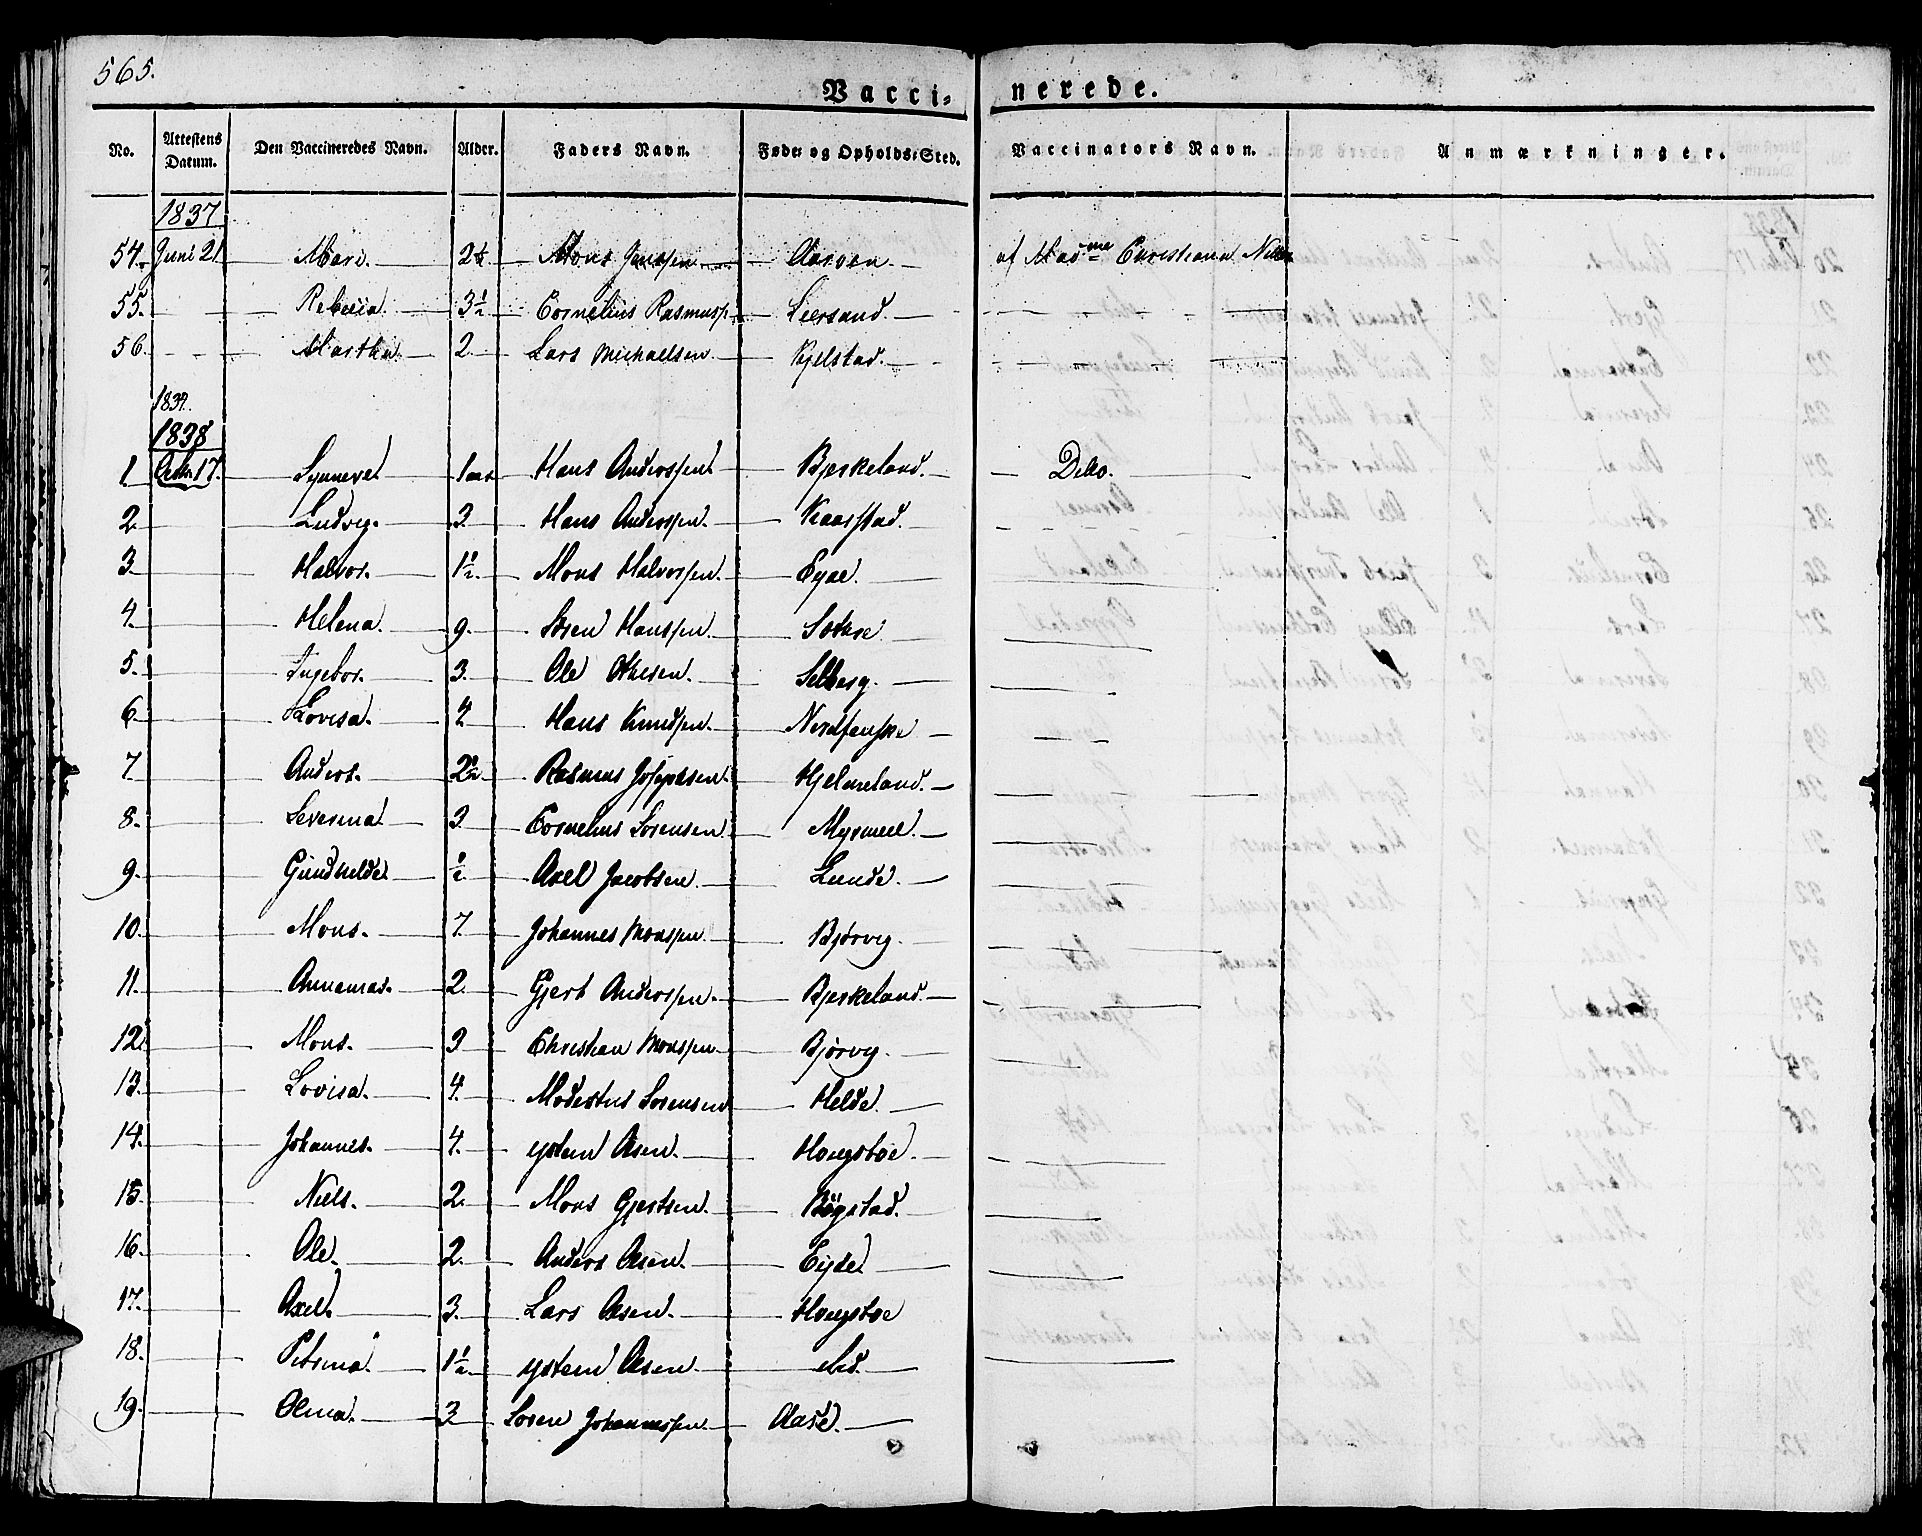 565.
Vacci- nerede.
No. Attestens Datum. Den Vaccineredes Navn. Alder. Faders Navn. Føde- og Opholds-Sted. Vaccinators Navn. Anmærkninger.
1837
54. Juni 21 Mari. 2½ Mons Jenssen Aarven af Madme Christiana
55. Rebecca 3½ Cornelius Rasmussp. Leersand.
56. Martha 2. Lars Michaelsen Kjelstad.
1837.
1838
1 Octbr. 17. Synneve 1 aar Hans Anderssen Bjerkeland. Ditto.
2. Ludvig. 3. Hans Anderssen. Kaarstad.
3. Halvor. 1½. Mons Halvorssen.
4. Helena 9. Sören Hanssen.
5. Ingebor. 3. Ole Selberg.
6. Lovisa. 4. Hans Knudssen.
7 Anders. 2½. Rasmus Josephsen Hjelmeland.
8. Severina 3 Cornelius Sörensen Myrmeel.
9. Gundhilde ½ Axel Jacobsen Lunde.
10. Mons. 7. Johannes Monssen Bjørvig.
11. Annamar. 2. Gjert Anderssen. Bjerkeland.
12. Mons. 3 Christian Monssen Bjørvig.
13. Lovisa. 4. Modestus Sörensen Helde.
14. Johannes. 4. ystein Olsen. Hougsböe.
15. Niels. 2. Mons Gjertsen. Bögstad.
16. Ole. 2. Anders Olsen. Eijde
17. Axel. 3. Lars Olsen. Hougsböe
18. Petrina. 1½ ystein Olsen. ibid.
19. Olina. 3. Sören Johannessen Aase.